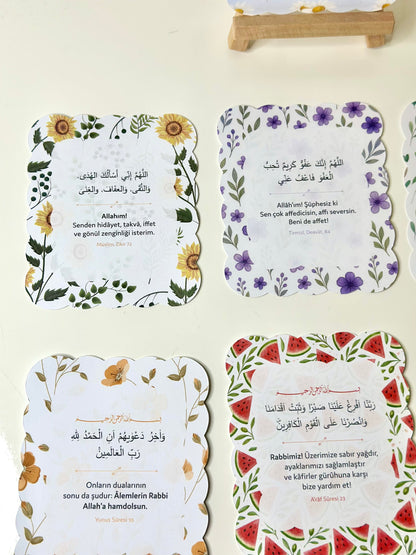 اللَّهُمَّ إِنِّي أَسْأَلُكَ الهُدَى،
وَالتُّقَى، وَالعَفَافَ، وَالغِنَى
Allahım!
Senden hidâyet, takvâ, iffet
ve gönül zenginliği isterim.
Müslim, Zikir 72
اللَّهُمَّ إِنَّكَ عَفُوٌّ كَرِيمٌ تُحِبُّ
الْعَفْوَ فَاعْفُ عَنِّي
Allâh'ım! Şüphesiz ki
Sen çok affedicisin, affı seversin.
Beni de affet!
Tirmizî, Deavât, 84
بسم الله الرحمن الرحيم
وَآخِرُ دَعْوَيهُمْ اَنِ الْحَمْدُ لِلّٰهِ
رَبِّ الْعَالَمِينَ
Onların dualarının
sonu da şudur: Âlemlerin Rabbi
Allah'a hamdolsun.
Yunus Sûresi 10
بسم الله الرحمن الرحيم
رَبَّنَا اَفْرِغْ عَلَيْنَا صَبْرًا وَثَبِّتْ اَقْدَامَنَا
وَانْصُرْنَا عَلَى الْقَوْمِ الْكَافِرِينَ
Rabbimiz! Üzerimize sabır yağdır,
ayaklarımızı sağlamlaştır
ve kâfirler gürûhuna karşı
bize yardım et!
A'râf Sûresi 23